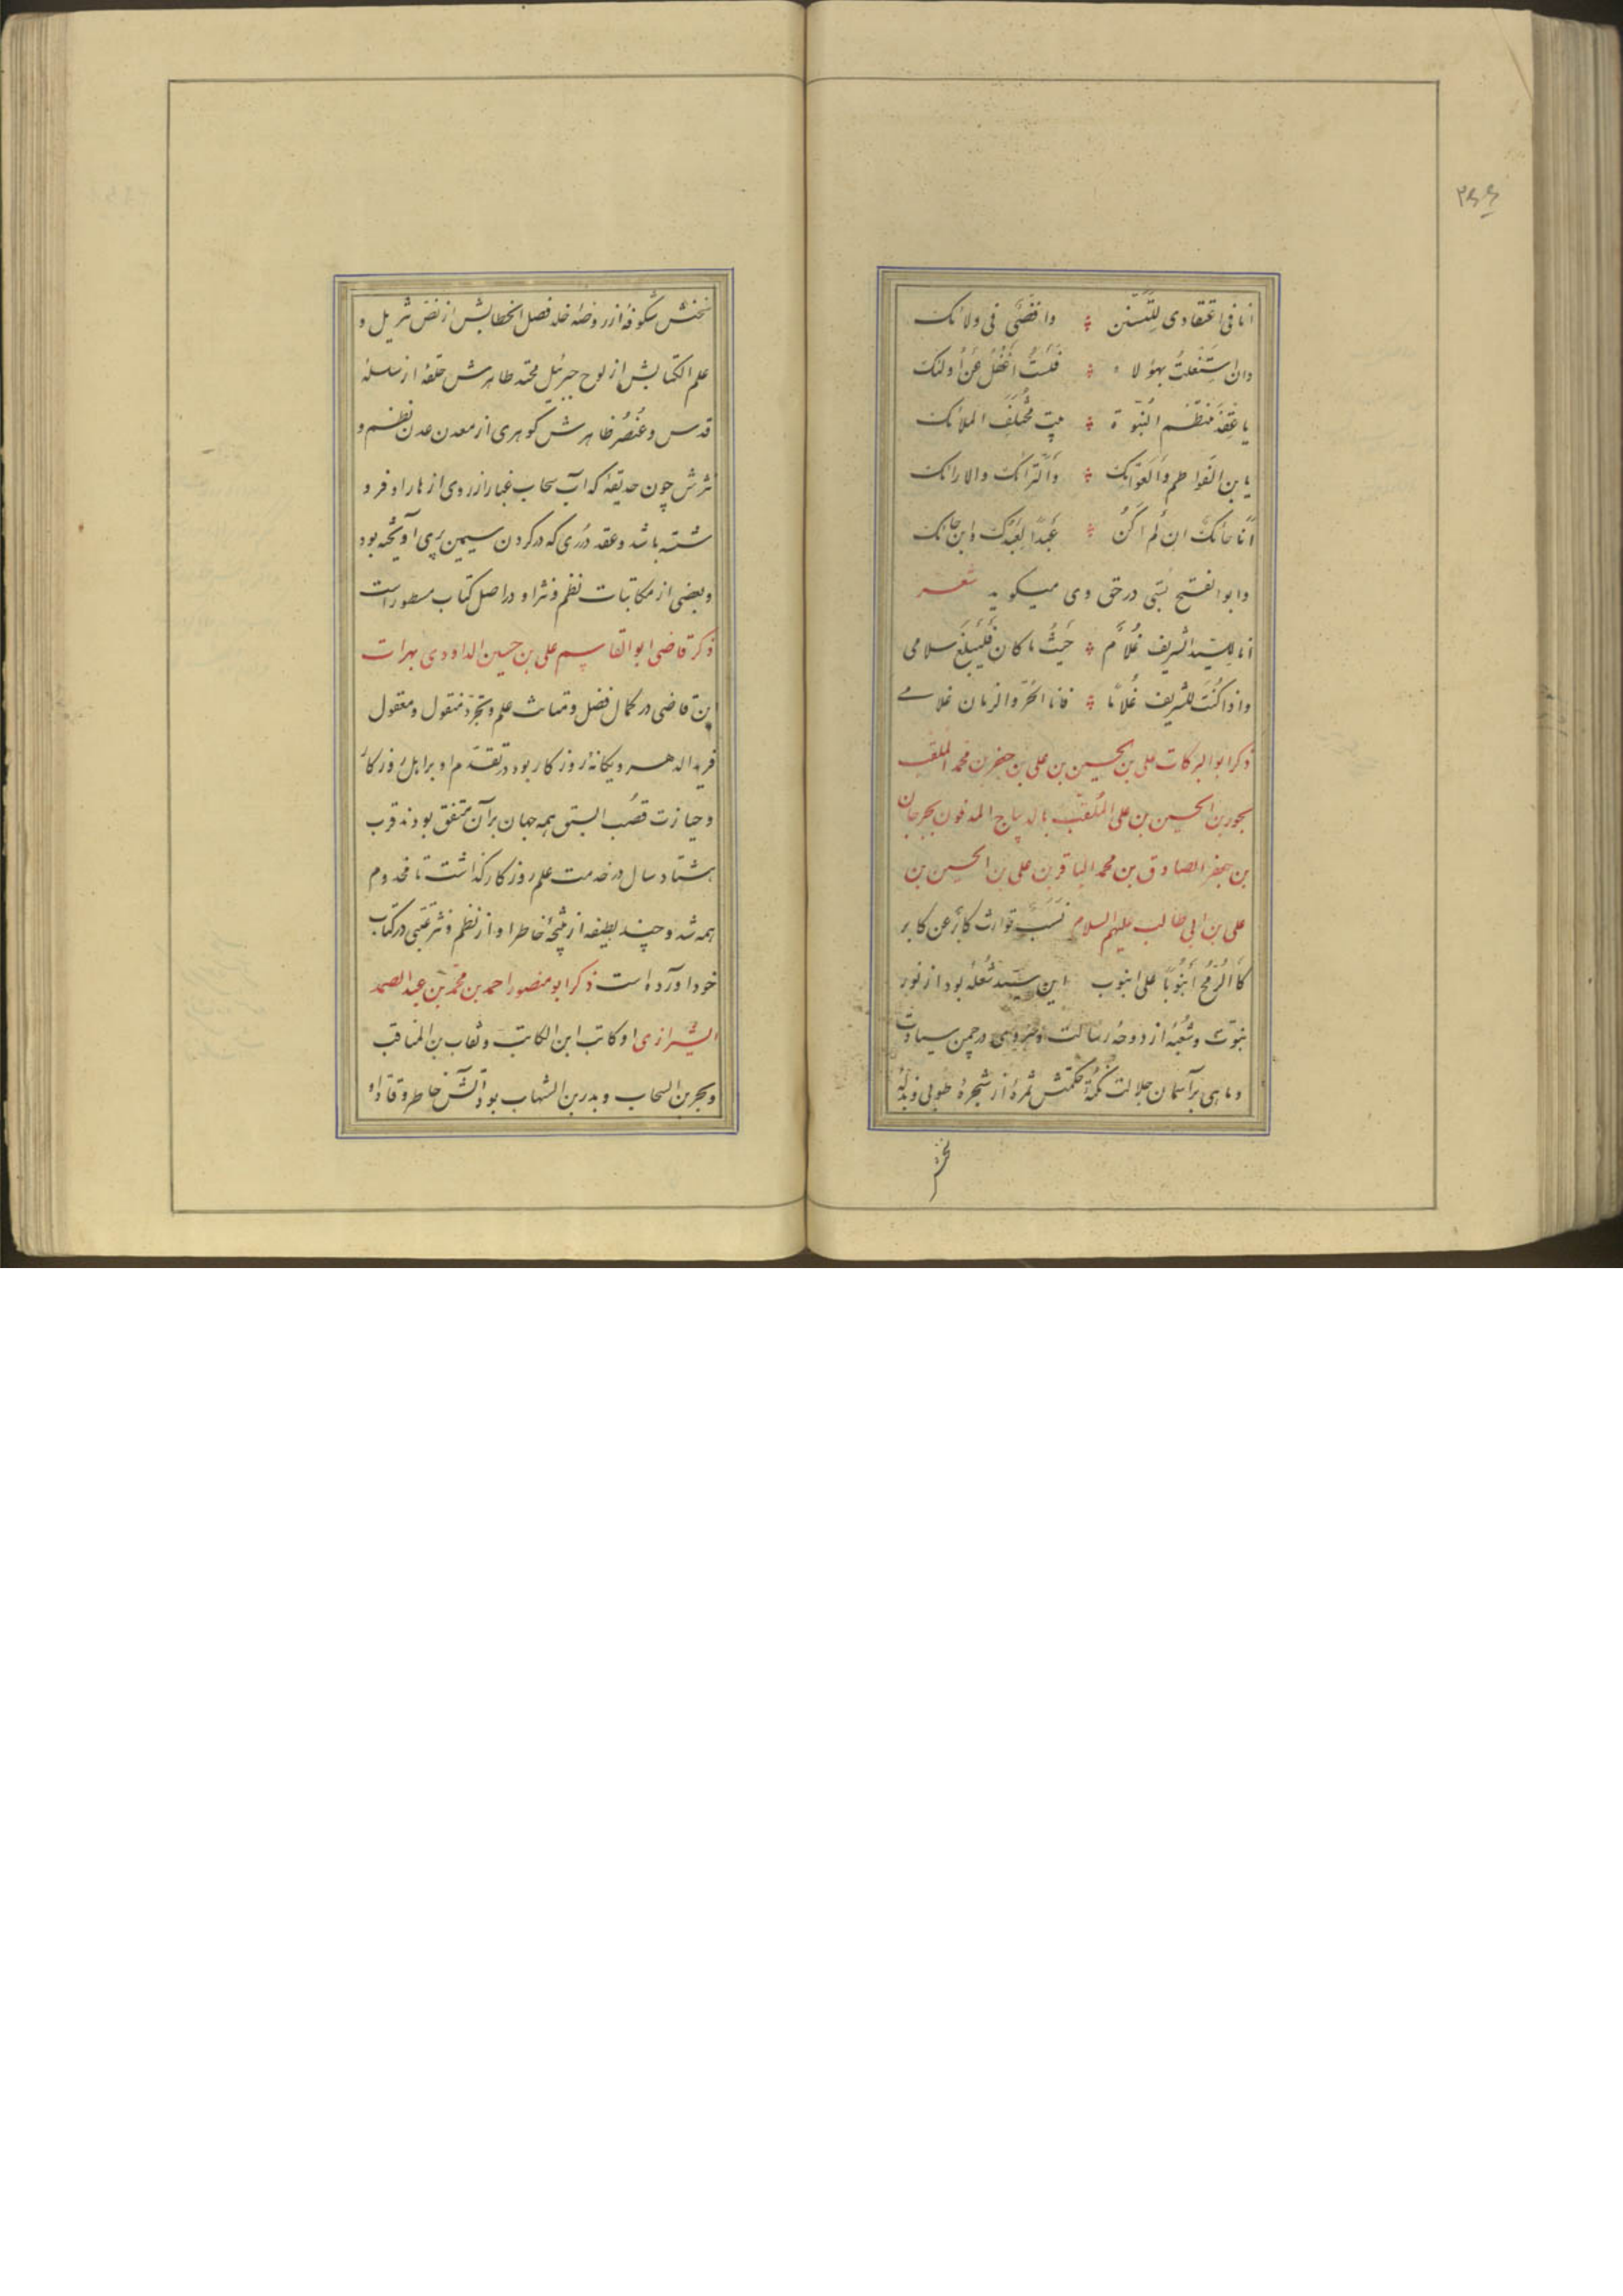 انا فی اعتقادی للتسنن وافضی فی ولائک
وان استغلت بهؤلاء فلست اغفل عن اولئک
یا عقد منتظم النبوة بیت مختلف الملائک
یا بن الفواطم والعواتک والترائک والارائک
انا حائک ان لم اکن عبدا لعبدک وابن حائک
وابو الفتح بستی در حق وی میگوید شعر
انا للسید الشریف غلام حیث ما کان فلیبلغ سلامی
واذا کنت للشریف غلاما فانا الحر والزمان غلامی
ذکر ابو البرکات علی بن الحسین بن علی بن جعفر بن محمد الملقب
بجور بن الحسین بن علی الملقب بالدیباج المدفون بجرجان
بن جعفر الصادق بن محمد الباقر بن علی بن الحسین بن
علی بن ابی طالب علیهم السلام نسب توارث کابر عن کابر
کا الرمح انبوبا علی انبوب این سید شعلهٔ بود از نور
نبوت و شعبهٔ از دوحهٔ رسالت و سروی در چمن سیادت
و ماهی بر آسمان جلالت نکتهٔ حکمتش ثمرهٔ از شجرهٔ طوبی و بذلهٔ
سخنش شکوفهٔ از روضهٔ خلد فصل الخطابش از نص تنزیل و
علم الکتابش از لوح جبرئیل محتد طاهرش حلقهٔ از سلسلهٔ
قدس و عنصر ظاهرش گوهری از معدن عدن نظم و
نثرش چون حدیقهٔ که آب سحاب غبار از روی ازهار او فرو
شسته باشد و عقد دری که در گردن سیمین پری آویخته بود
و بعضی از مکاتبات نظم و نثر او در اصل کتاب مسطور است
ذکر قاضی ابو القاسم علی بن حسین الداودی بهرات
این قاضی در کمال فضل و متانت علم و تبحر منقول و معقول
فرید الدهر و یگانهٔ روزگار بود در تقدم او بر اهل روزگار
و حیازت قصب السبق همه جهان بر آن متفق بودند قرب
هشتاد سال در خدمت علم روزگار گذاشت تا مخدوم
همه شد و چند لطیفه از نتیجهٔ خاطر او از نظم و نثر عتبی در کتاب
خود آورده است ذکر ابو منصور احمد بن محمد بن عبد الصمد
الشیرازی او کاتب ابن الکاتب و نقاب بن المناقب
و بحر بن السحاب و بدر بن الشهاب بود آتش خاطر وقاد او